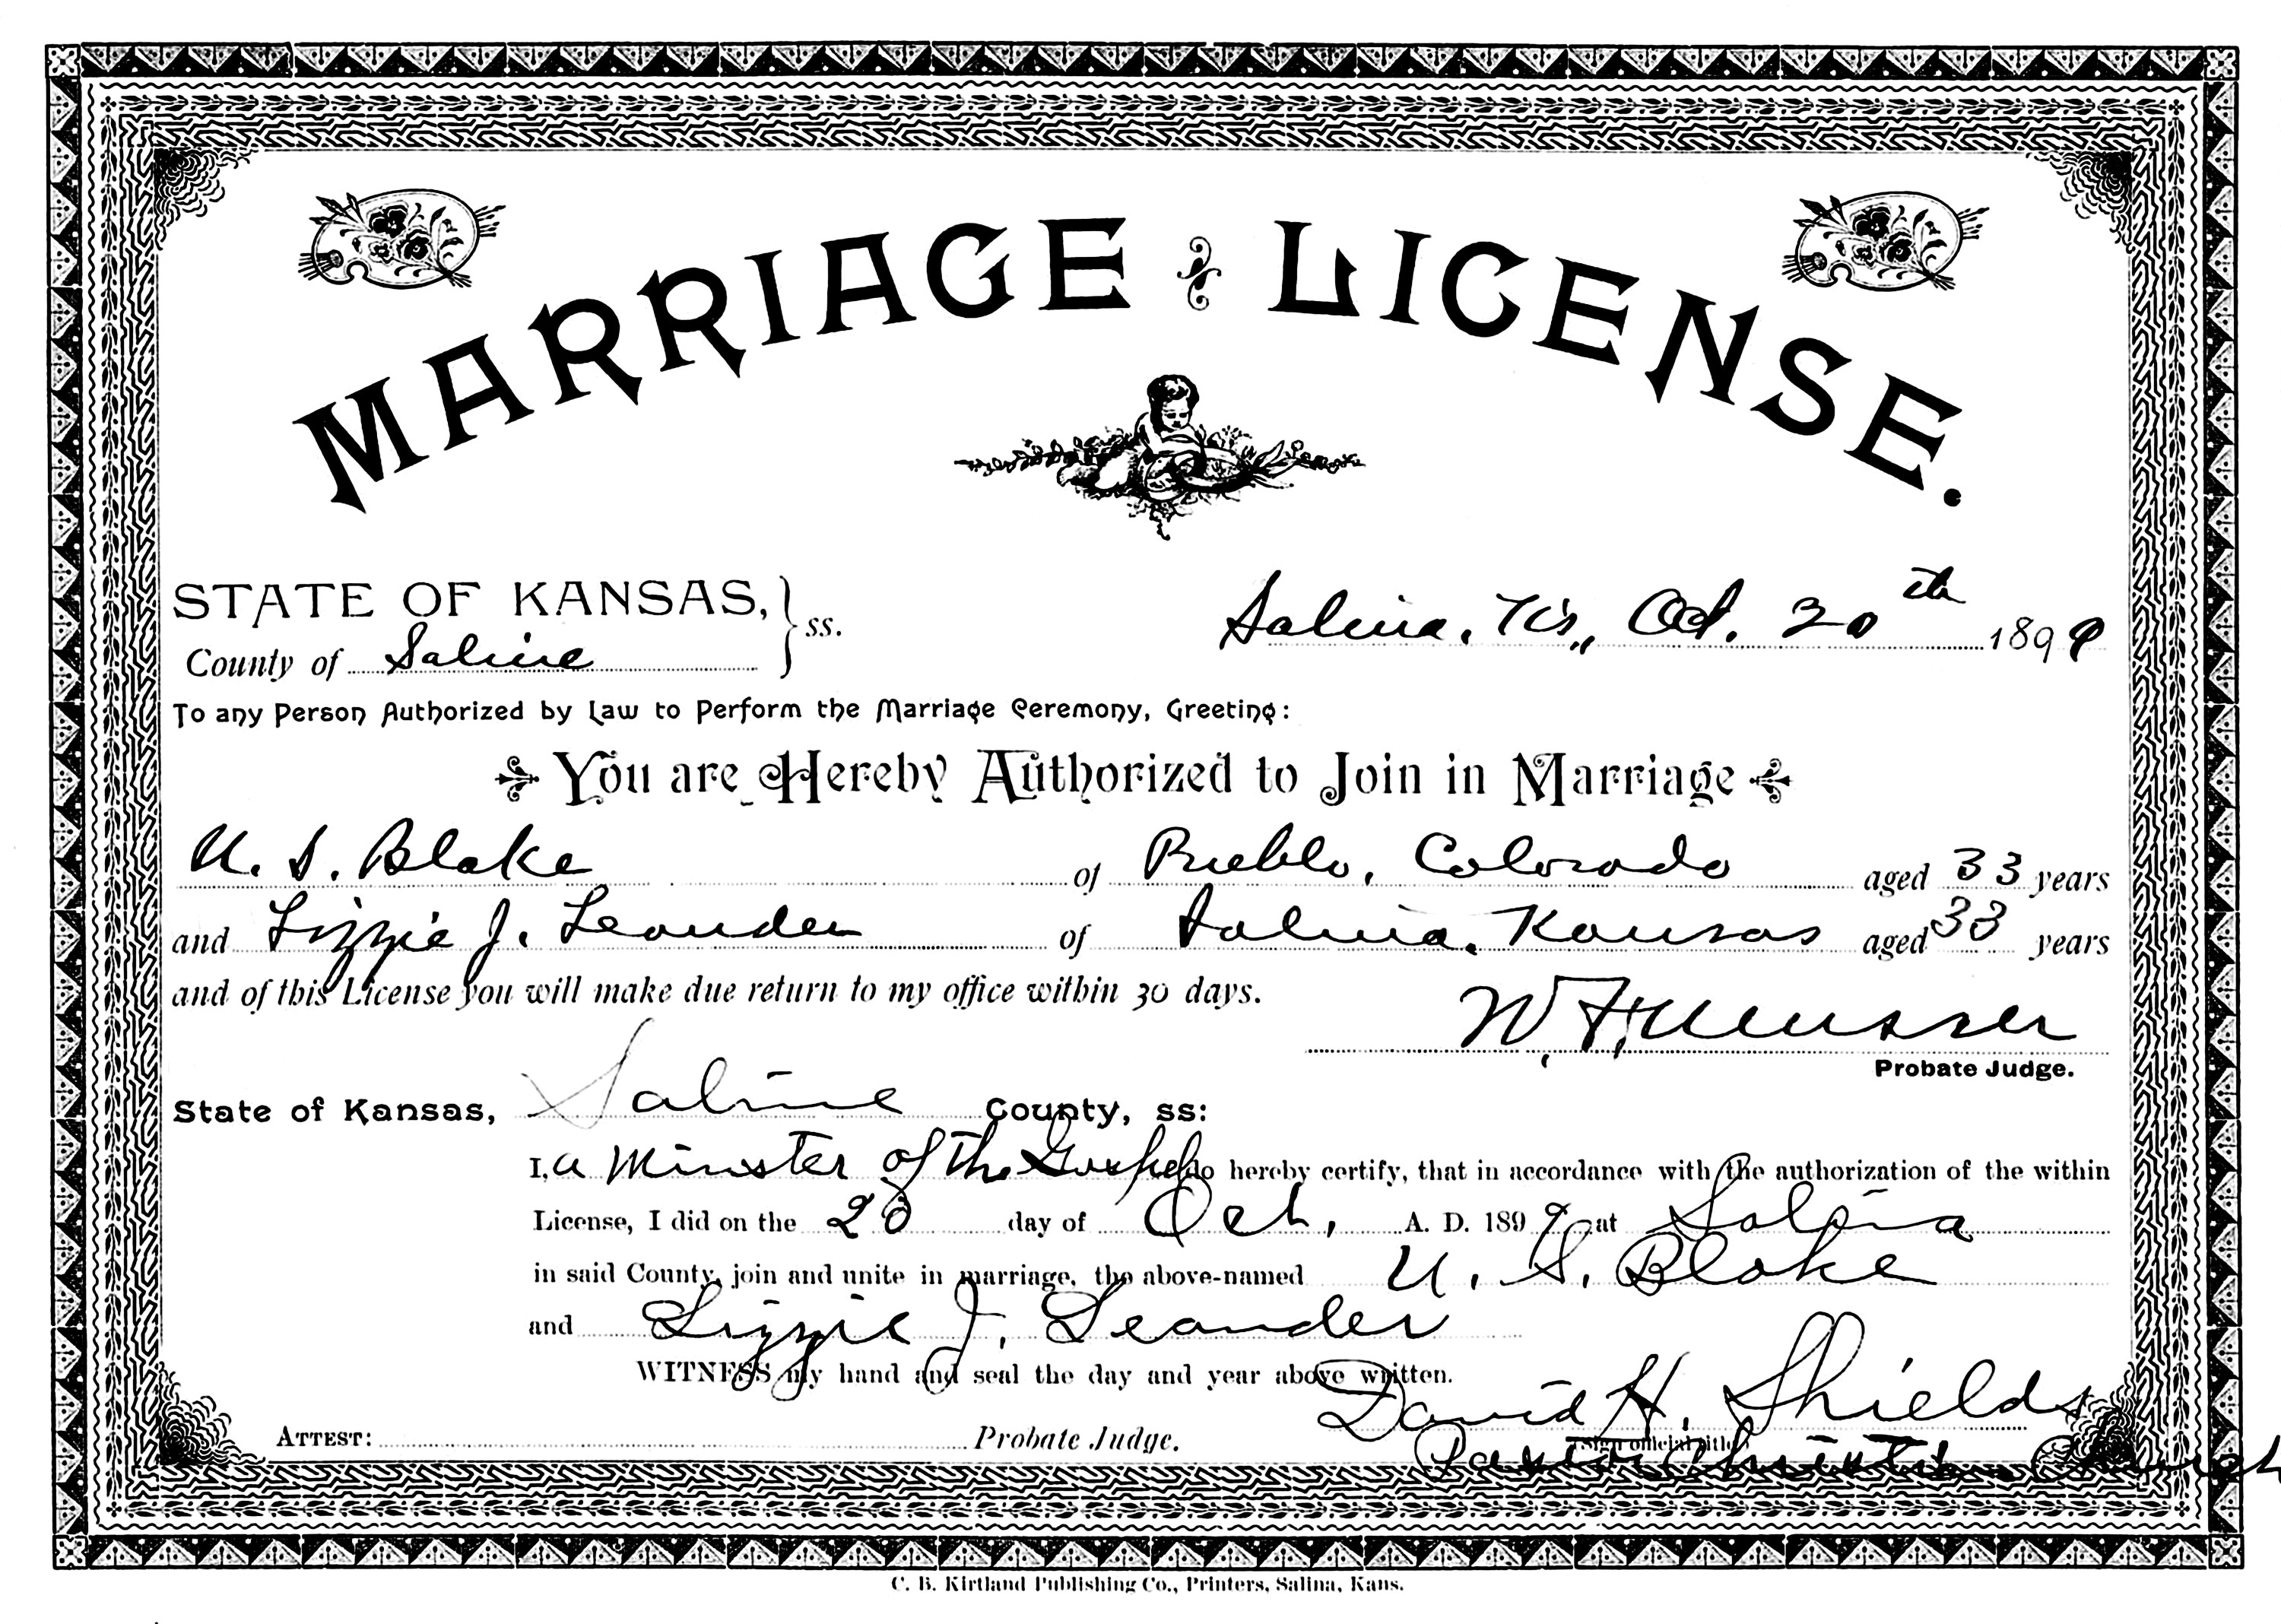 MARRIAGE LICENSE.
STATE OF KANSAS, } ss.
Salina, Ks., Oct. 20th 1899
County of Saline
To any Person Authorized by Law to Perform the Marriage Ceremony, Greeting:
You are Hereby Authorized to Join in Marriage
U. S. Blake of Pueblo, Colorado aged 33 years
and Lizzie J. Leander of Salina, Kansas aged 33 years
and of this License you will make due return to my office within 30 days.
W. F. Musser
Probate Judge.
State of Kansas, Saline County, ss:
I, a Minster of the Gospel do hereby certify, that in accordance with the authorization of the within
License, I did on the 20 day of Oct, A. D. 1899 at Salina
in said County, join and unite in marriage, the above-named U. S. Blake
and Lizzie J. Leander
WITNESS my hand and seal the day and year above written.
David H. Shields
ATTEST: Probate Judge. (Sign official title)
Pastor Christian Church
C. B. Kirtland Publishing Co., Printers, Salina, Kans.